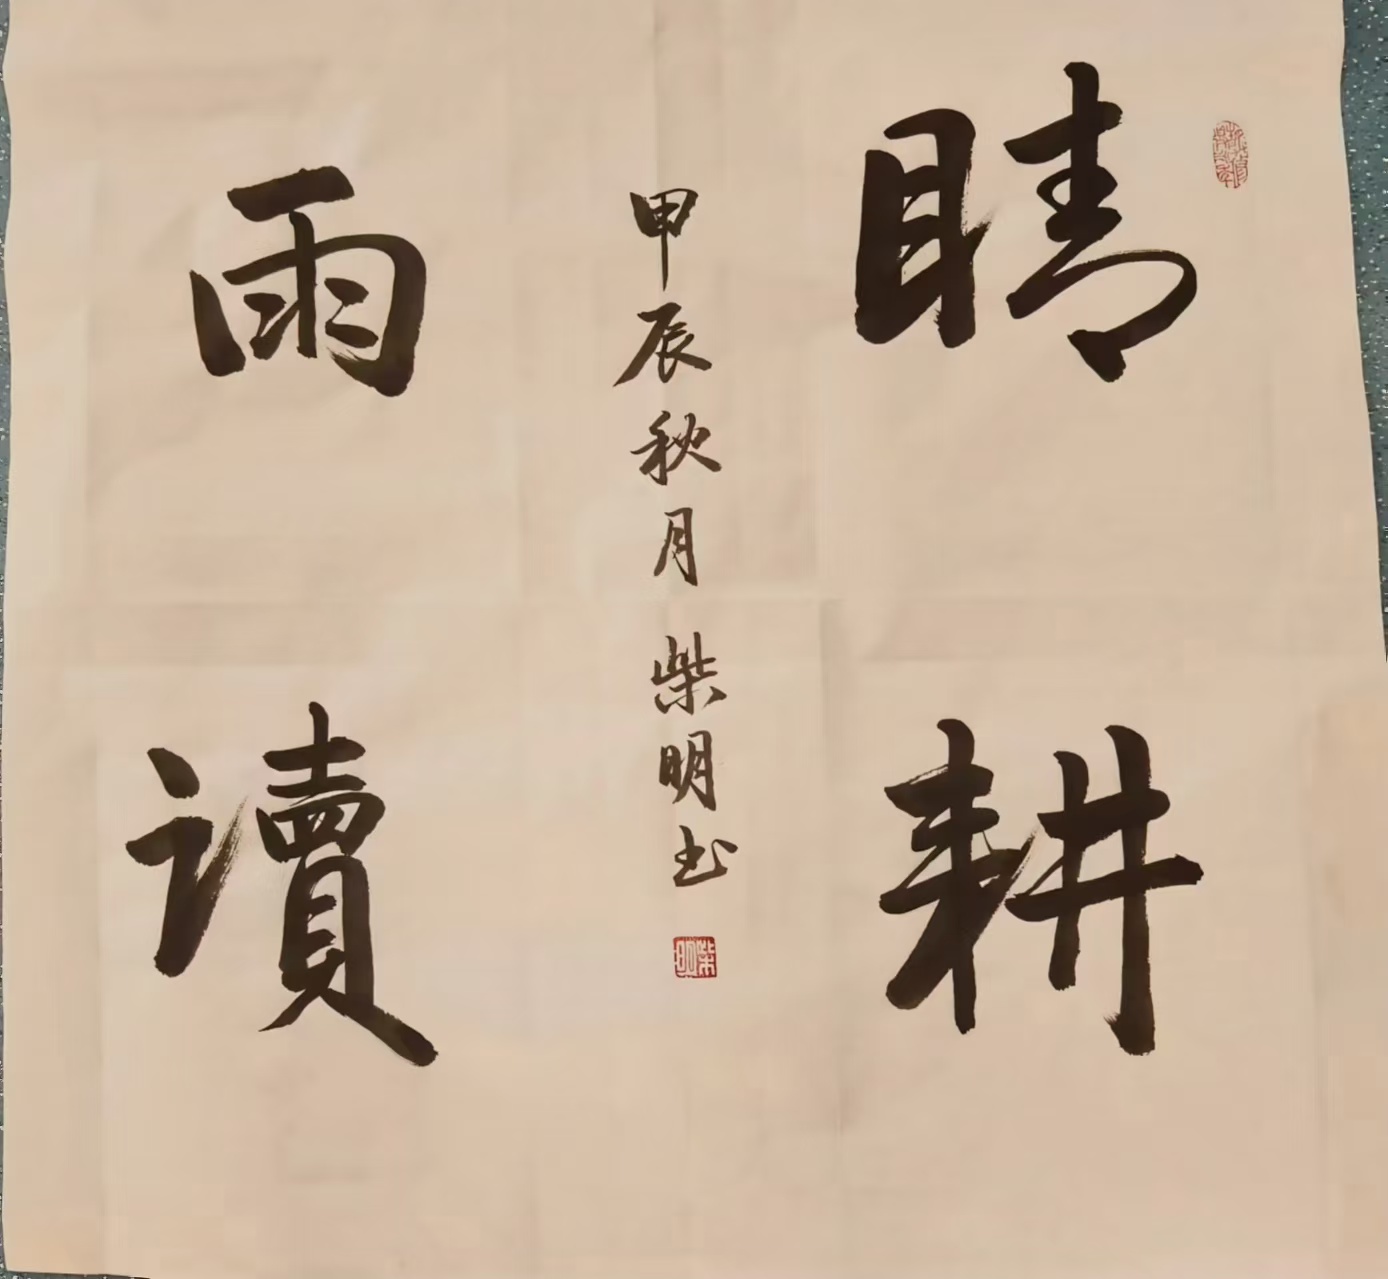 睛耕
甲辰秋月柴明书
柴明
雨讀